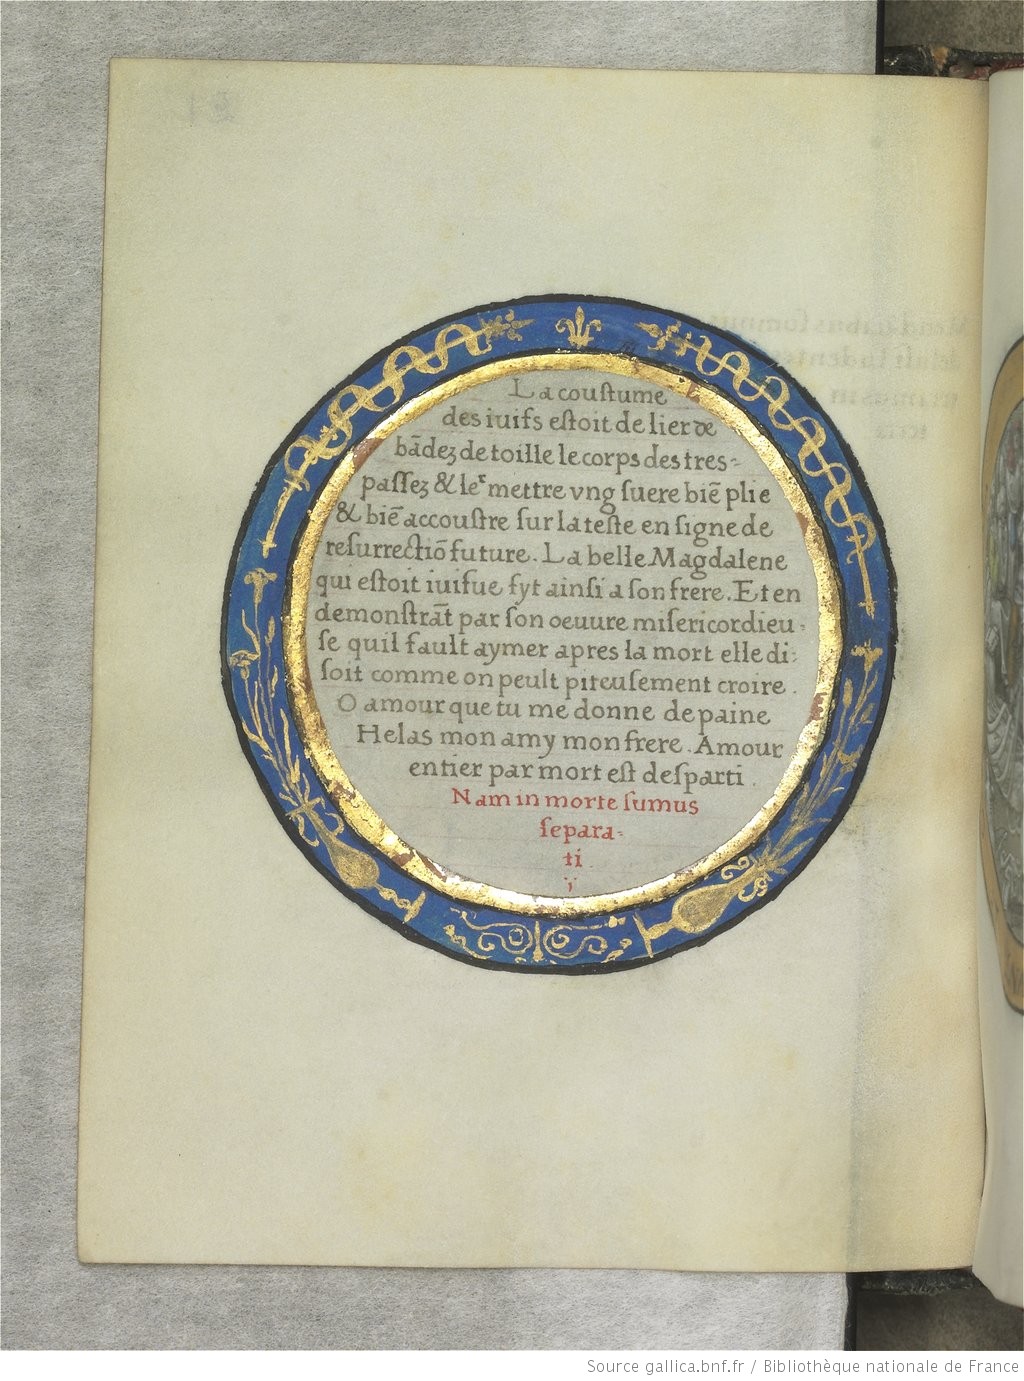 La coustume
des iuifs estoit de lier de
bãdez de toille le corps des tres-
passez & leʳ mettre vng suere biẽ plie
& biẽ accoustre sur la teste en signe de
resurrectiõ future. La belle Magdalene
qui estoit iuifue fyt ainsi a son frere. Et en
demonstrãt par son oeuure misericordieu-
se quil fault aymer apres la mort elle di-
soit comme on peult piteusement croire.
O amour que tu me donne de paine
Helas mon amy mon frere. Amour
entier par mort est desparti.
Nam in morte sumus
separa-
ti.
Source gallica.bnf.fr / Bibliothèque nationale de France